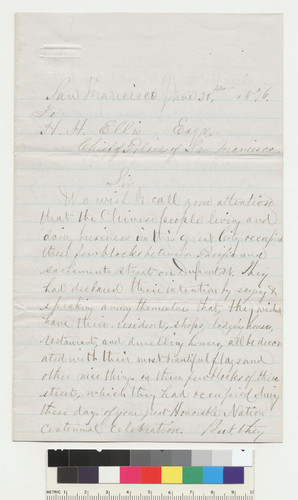 San Francisco June 30th 1876.
To
H. H. Ellis Esqr.
Chief Police of San Francisco
Sir
We wish to call your attention
that the Chinese people living and
doing business in this great City occupied
these few blocks between and
Sacramento street on Dupont st. They
had declared their intention by saying &
speaking among themselves that, they wished
have their residents, shops, lodging houses,
restaurants, and dwelling houses, all be decor
ated with their most beautiful flags and
other nice things on these few blocks of these
street, which they had occupied during
these days of your great Honorable Nation
Centennial Celebration. But they
METRIC 1 2 3 4 5 6